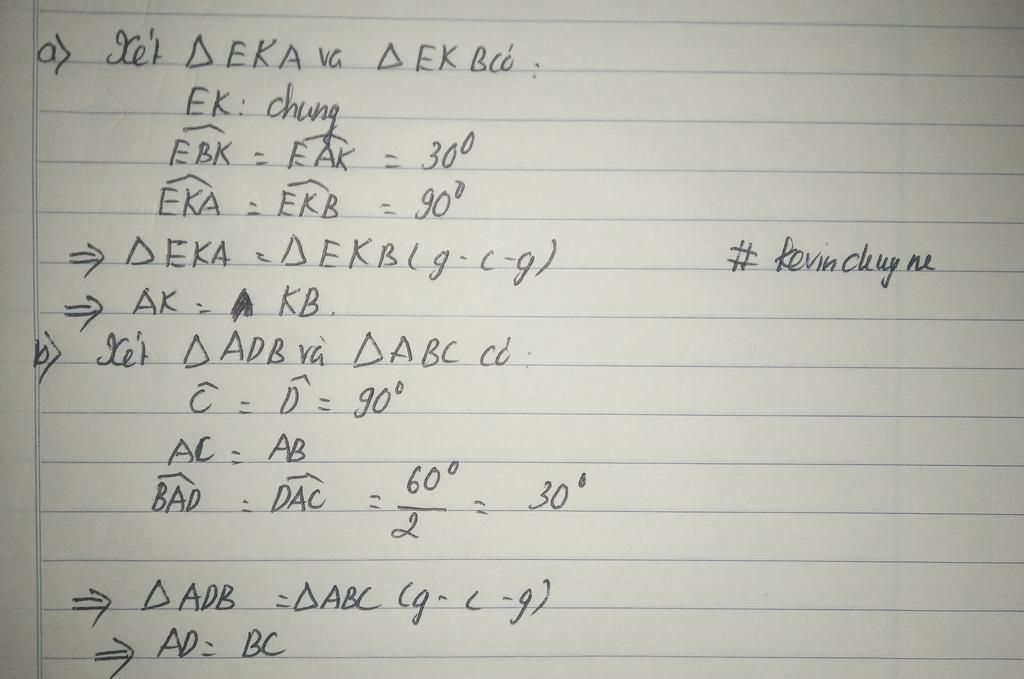 a) Xét Δ EKA và Δ EKB có :
EK : chung
\widehat{EBK} = \widehat{EAK} = 30⁰
\widehat{EKA} = \widehat{EKB} = 90⁰
⇒ Δ EKA = Δ EKB (g - c - g)
# kevinchuyne
⇒ AK = KB.
b) Xét Δ ADB và Δ ABC có :
\widehat{C} = \widehat{D} = 90⁰
AC = AB
\widehat{BAD} = \widehat{DAC} = 60⁰/2 = 30⁰
⇒ Δ ADB = Δ ABC (g - c - g)
⇒ AD = BC